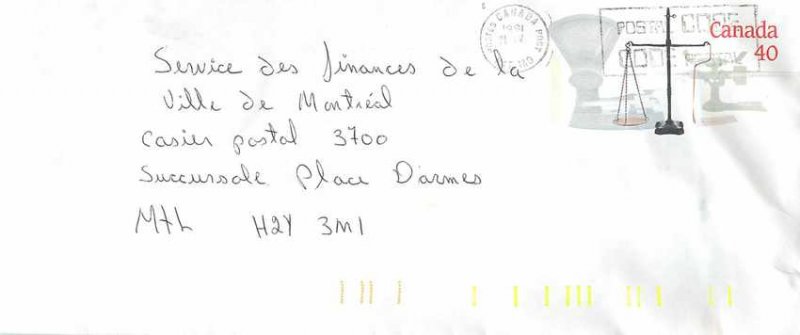 CANADA POST
1991
POSTAL CODE
CODE POSTAL
Canada
40
Service des finances de la
Ville de Montréal
Casier postal 3700
Succursale Place D'armes
Mtl H2Y 3M1